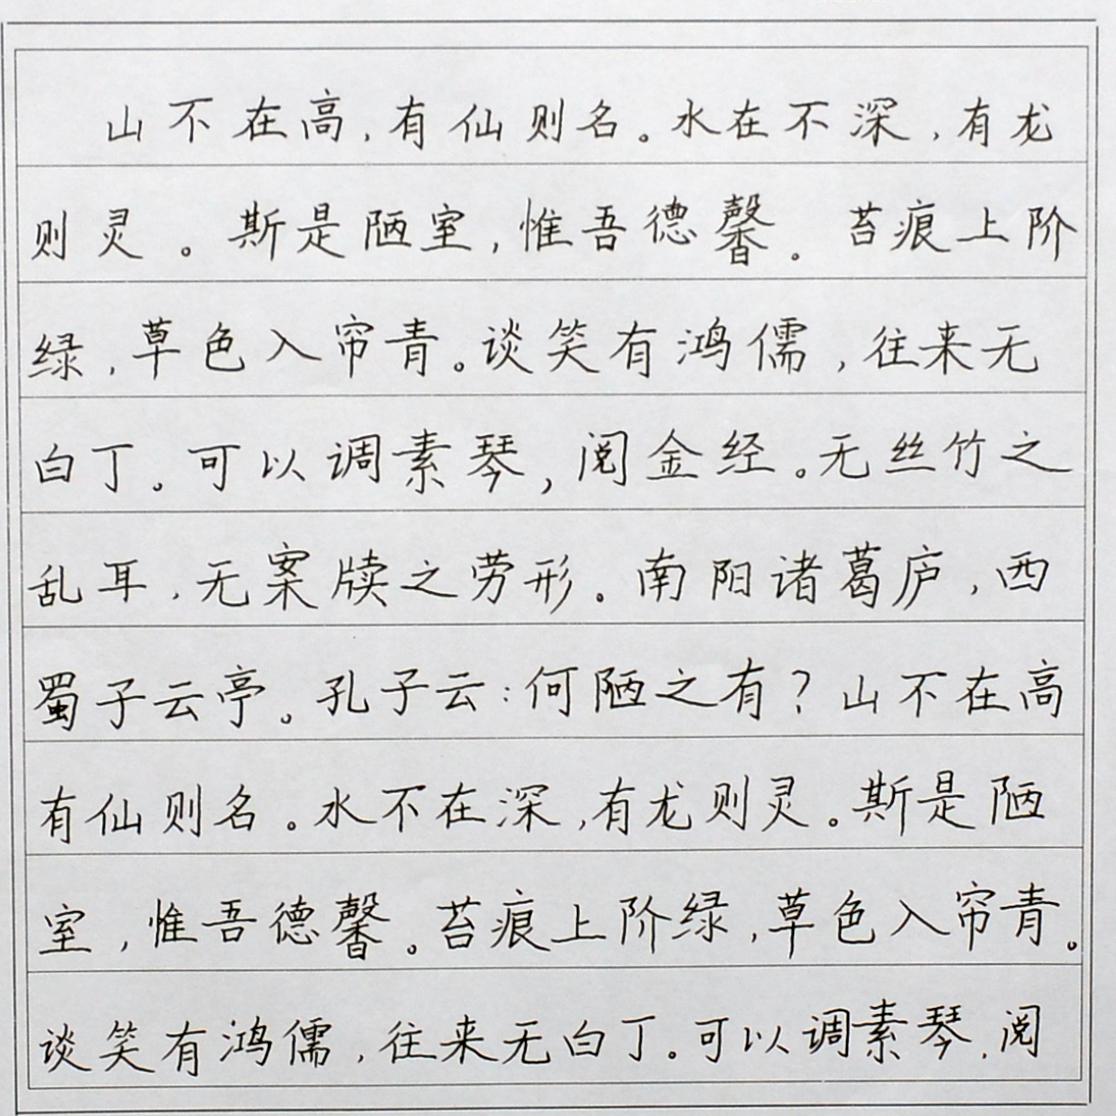 山不在高,有仙则名。水在不深,有龙
则灵。斯是陋室,惟吾德馨。苔痕上阶
绿,草色入帘青。谈笑有鸿儒,往来无
白丁。可以调素琴,阅金经。无丝竹之
乱耳,无案牍之劳形。南阳诸葛庐,西
蜀子云亭。孔子云:何陋之有?山不在高
有仙则名。水不在深,有龙则灵。斯是陋
室,惟吾德馨。苔痕上阶绿,草色入帘青。
谈笑有鸿儒,往来无白丁。可以调素琴,阅